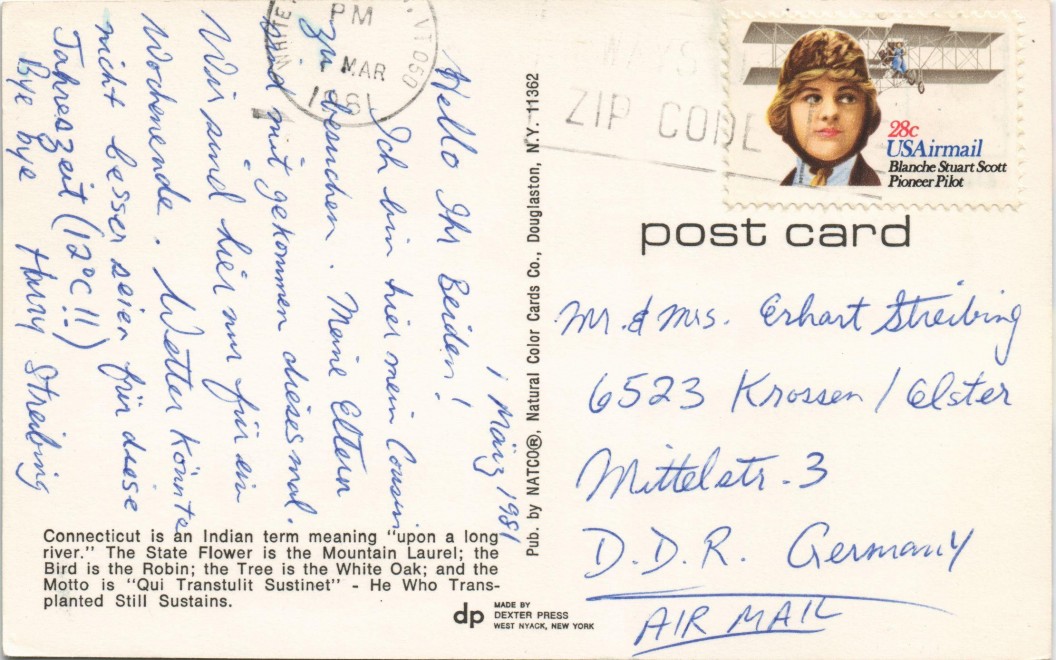 1 März 1981
Hello Ihr Beiden!
Ich bin hier mein Cousin
zu besuchen. Meine Eltern
sind mit gekommen diesesmal.
Wir sind hier nur für ein
Wochenende. Wetter könnte
nicht besser seien für diese
Jahreszeit (12°C!!)
Bye bye Harry Streibing
Connecticut is an Indian term meaning "upon a long
river." The State Flower is the Mountain Laurel; the
Bird is the Robin; the Tree is the White Oak; and the
Motto is "Qui Transtulit Sustinet" - He Who Trans-
planted Still Sustains.
dp
MADE BY
DEXTER PRESS
WEST NYACK, NEW YORK
Pub. by NATCO®, Natural Color Cards Co., Douglaston, N.Y. 11362
PM
1 MAR
1981
VT 050
WAYS
ZIP CODE
28c
USAirmail
Blanche Stuart Scott
Pioneer Pilot
post card
Mr. & Mrs. Erhart Streibing
6523 Krossen / Elster
Mittelstr. 3
D.D.R. Germany
AIR MAIL